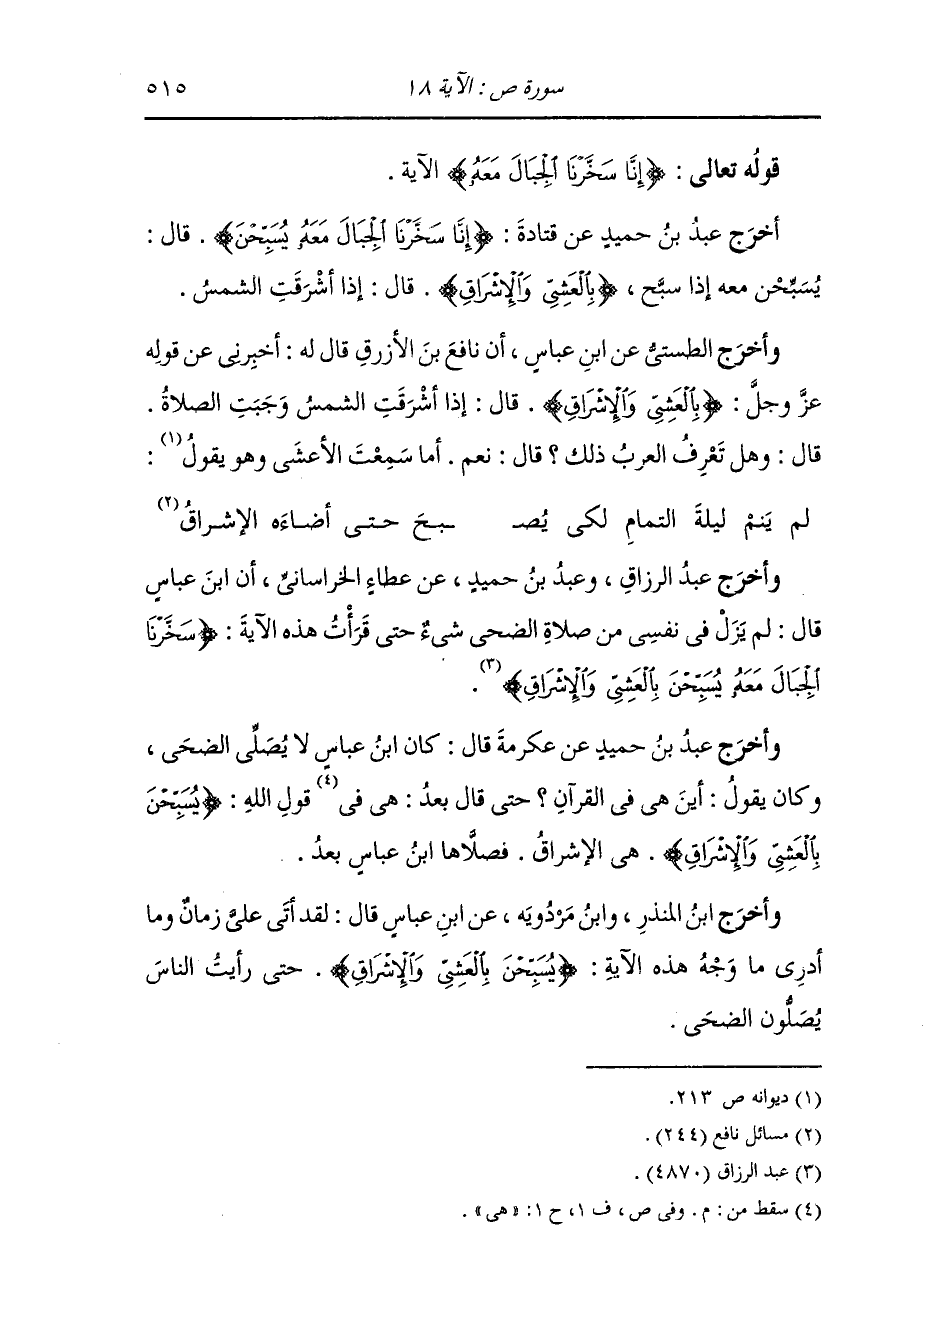 سورة ص : الآية ١٨ ٥١٥
قولُه تعالى : ﴿إِنَّا سَخَّرْنَا ٱلْجِبَالَ مَعَهُۥ﴾ الآية .
أخرَج عبدُ بنُ حميدٍ عن قتادةَ : ﴿إِنَّا سَخَّرْنَا ٱلْجِبَالَ مَعَهُۥ يُسَبِّحْنَ﴾ . قال :
يُسَبِّحْن معه إذا سبَّح ، ﴿بِٱلْعَشِيِّ وَٱلْإِشْرَاقِ﴾ . قال : إذا أشْرَقَتِ الشمسُ .
وأخرَج الطستىُّ عن ابنِ عباسٍ ، أن نافعَ بنَ الأزرقِ قال له : أخبِرنِى عن قولِه
عزَّ وجلَّ : ﴿بِٱلْعَشِيِّ وَٱلْإِشْرَاقِ﴾ . قال : إذا أشْرَقَتِ الشمسُ وَجَبَتِ الصلاةُ .
قال : وهل تَعْرِفُ العربُ ذلك ؟ قال : نعم . أما سَمِعْتَ الأعشَى وهو يقولُ(١) :
لم يَنمْ ليلةَ التمامِ لكى يُصـ ـبحَ حتـى أضـاءَه الإشـراقُ(٢)
وأخرَج عبدُ الرزاقِ ، وعبدُ بنُ حميدٍ ، عن عطاءٍ الخراسانىِّ ، أن ابنَ عباسٍ
قال : لم يَزَلْ فى نفسِى من صلاةِ الضحى شىءٌ حتى قَرَأْتُ هذه الآيةَ : ﴿سَخَّرْنَا
ٱلْجِبَالَ مَعَهُۥ يُسَبِّحْنَ بِٱلْعَشِيِّ وَٱلْإِشْرَاقِ﴾(٣) .
وأخرَج عبدُ بنُ حميدٍ عن عكرمةَ قال : كان ابنُ عباسٍ لا يُصَلِّى الضحَى ،
وكان يقولُ : أينَ هى فى القرآنِ ؟ حتى قال بعدُ : هى فى(٤) قولِ اللهِ : ﴿يُسَبِّحْنَ
بِٱلْعَشِيِّ وَٱلْإِشْرَاقِ﴾ . هى الإشراقُ . فصلَّاها ابنُ عباسٍ بعدُ .
وأخرَج ابنُ المنذرِ ، وابنُ مَرْدُويَه ، عن ابنِ عباسٍ قال : لقد أتَى علىَّ زمانٌ وما
أدرِى ما وَجْهُ هذه الآيةِ : ﴿يُسَبِّحْنَ بِٱلْعَشِيِّ وَٱلْإِشْرَاقِ﴾ . حتى رأيتُ الناسَ
يُصَلُّون الضحَى .
(١) ديوانه ص ٢١٣.
(٢) مسائل نافع (٢٤٤) .
(٣) عبد الرزاق (٤٨٧٠) .
(٤) سقط من : م . وفى ص ، ف ١، ح ١: «هى» .